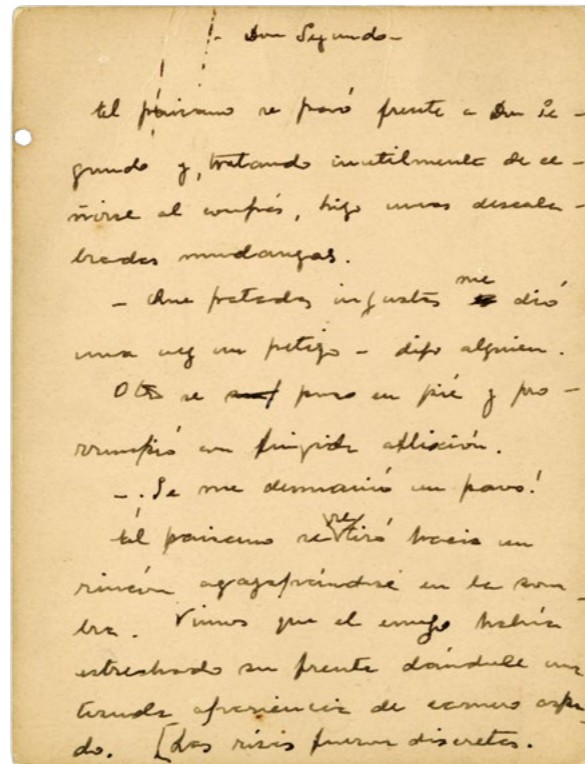 - Don Segundo -
El paisano se paró frente a Don Se-
gundo y, tratando inutilmente de ce-
ñirse al compás, hizo unas descala-
bradas mudanzas.
- Que patadas injustas me dió
una vez un petizo - dijo alguien.
Otro se puso en pié y pro-
rrumpió con fingida aflixión.
-. Se me desmaió un pavo!
El paisano se retiró hacia un
rincón agazapándose en la som-
bra. Vimos que el enojo había
estrechado su frente dándole una
teruda apariencia de carnero
do. [Las risas fueron discretas.